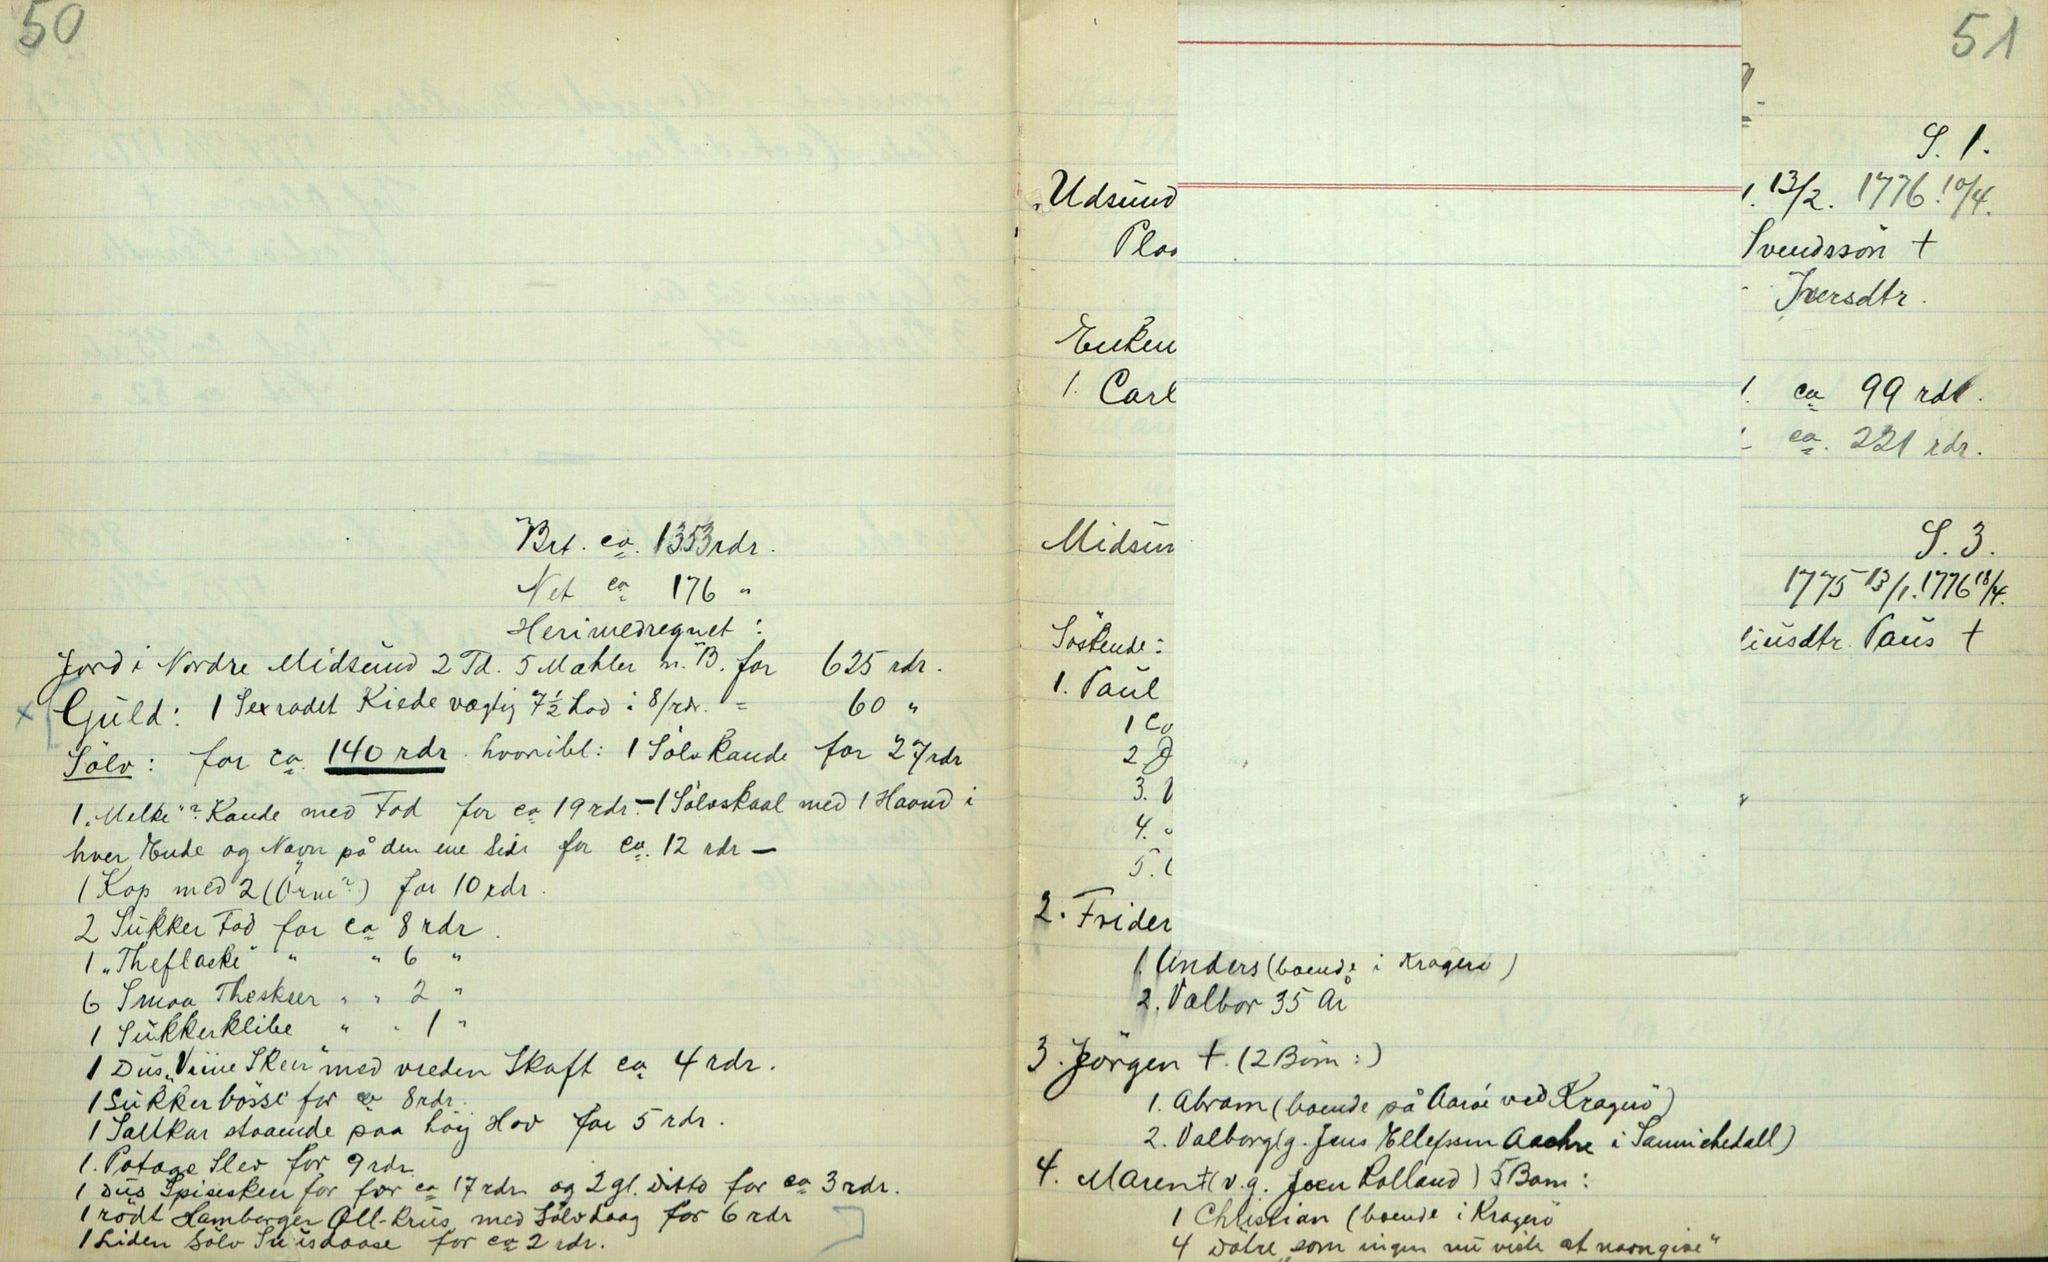 50
Brt. ca. 1353 rdr.
Net ca 176 "
Herimedregnet :
Jord i Nordre Midsund 2 Td. 5 Mæhler m. B. for 625 rdr.
x Guld: 1 Sexradet Kiede vægtig 7½ Lod i 8/rdr. = 60 "
Sölv: for ca. 140 rdr. hvoribl: 1 Sölvkande for 27 rdr
1 „Melke"? Kande med Fad for ca 19 rdr. – 1 Sölvskaal med 1 Haand i
hver Ende og Navn på den ene Side for ca. 12 rdr –
1 Kop med 2 („Örne"?) for 10 rdr.
2 Sukker Fad for ca 8 rdr.
1 „Theflaske" " " 6 "
6 Smaa Theskeer " " 2 "
1 Sukkerklibe " " 1 "
1 Dus „Viine Skeer" med vreden Skaft ca 4 rdr.
1 Sukkerbösse for ca 8 rdr.
1 Saltkar staaende paa höij for 5 rdr.
1. Potage Slev for 9 rdr.
1 Dus Spiseskeer for ca 17 rdr og 2 gl. Ditto for ca 3 rdr.
1 rödt Hamborger Öll-Krus med Sölvlaag for 6 rdr
1 Liden Sölv for ca 2 rdr.
51
S. 1.
„Udsund
1. 13/2. 1776 10/4.
Plad
Svendssön †
Iversdtr.
Enken
1. Carl
ca 99 rdl.
ca. 221 rdr.
Midsun
S. 3.
1775 13/1. 1776 18/4.
Söskende:
liusdtr. Paus †
1. Paul
1 Co
2
3.
4. "
5.
2. Frider
1. Anders (boende i Kragerö)
2. Valbor 35 År
3. Jörgen †. (2 Börn :)
1. Abram (boende på Aaröe ved Kragerö)
2. Valborg (g. Jens Ellefssen i Sannichedall)
4. Maren † (v. g. Joen Lolland) 5 Barn :
1 Christian (boende i Kragerö
4 Dötre „som ingen nu viste at navngive"